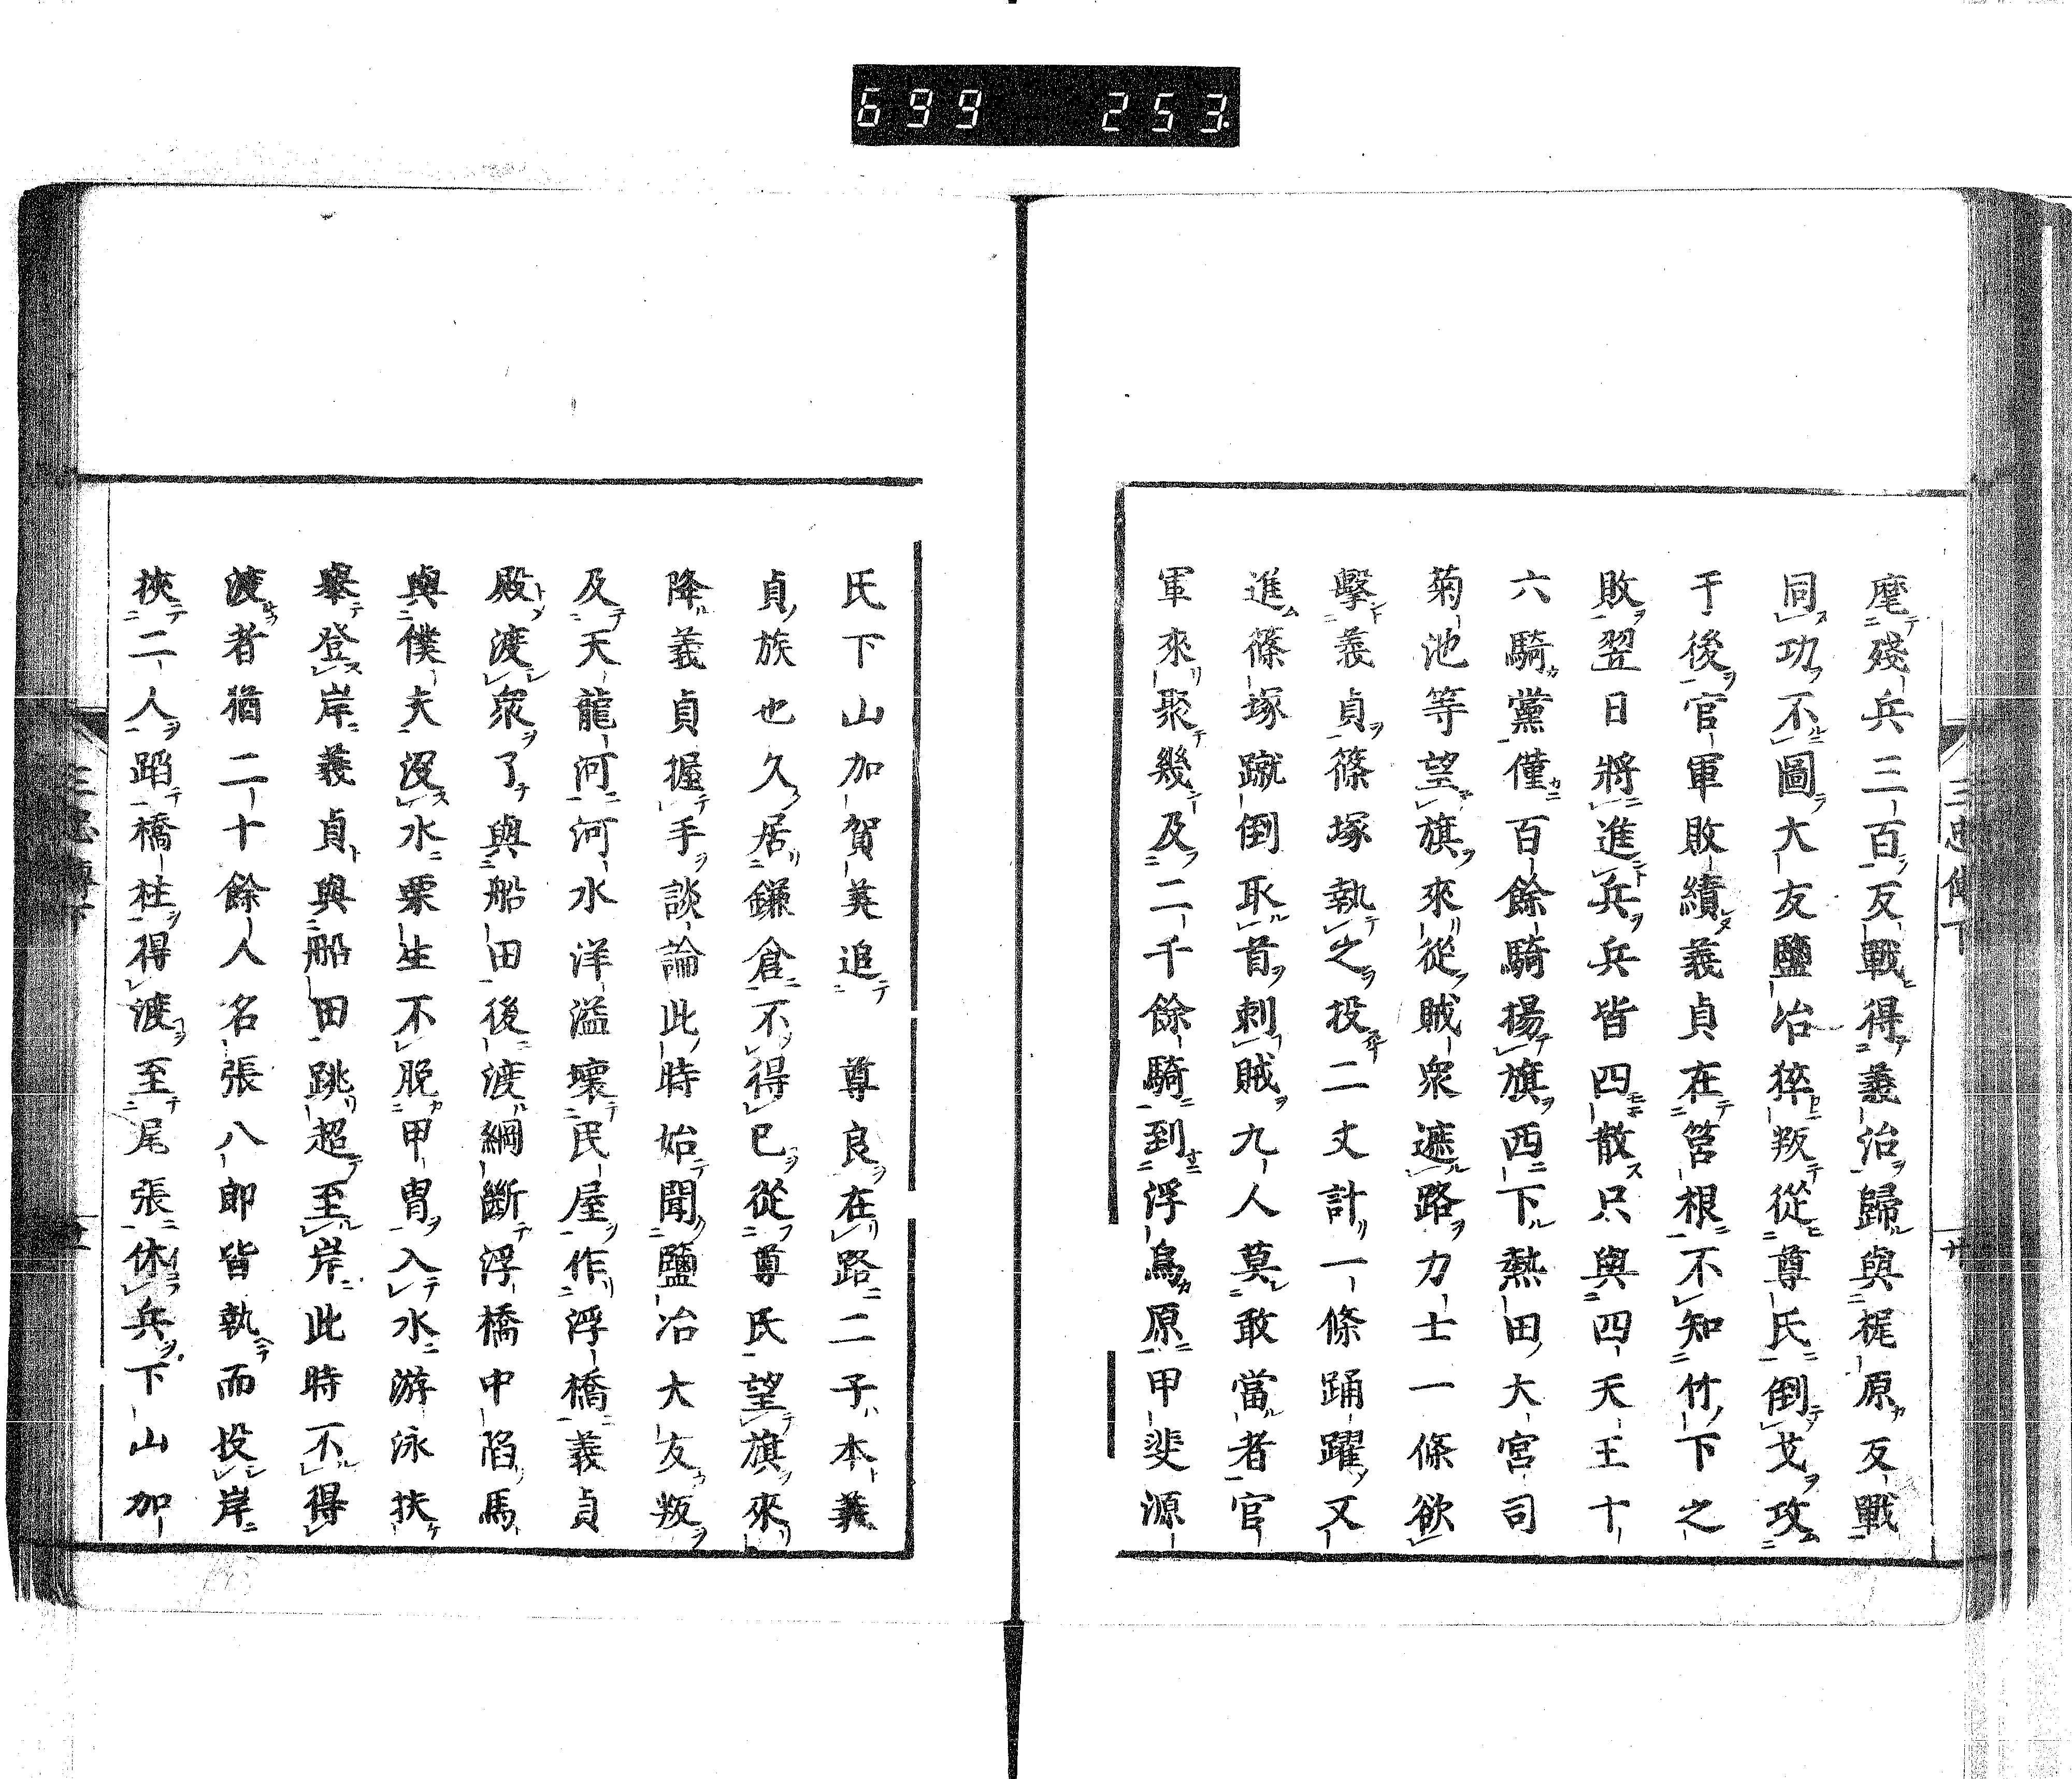 699 253
三忠傳下
廿
麾殘兵三百反戰得義治歸與梶原反戰
同功不圖大友鹽冶猝叛從尊氏倒戈攻
于後官軍敗績義貞在筥根不知竹下之
敗翌日將進兵兵皆四散只與四天王十
六騎黨僅百餘騎揚旗西下熱田大宮司
菊池等望旗來從賊衆遮路力士一條欲
擊義貞篠塚執之投二丈計一條踊躍又
進篠塚蹴倒取首刺賊九人莫敢當者官
軍來聚幾及二千餘騎到浮島原甲斐源
氏下山加賀美追 尊良在路二子本義
貞族也久居鎌倉不得已從尊氏望旗來
降義貞握手談論此時始聞鹽冶大友叛
及天龍河河水洋溢壞民屋作浮橋義貞
殿渡衆了與船田後渡綱斷浮橋中陷馬
與僕夫沒水栗生不脫甲冑入水游泳扶
擧登岸義貞與船田跳超至岸此時不得
渡者猶二十餘人名張八郎皆執而投岸
挾二人蹈橋柱得渡至尾張休兵下山加
三忠傳下